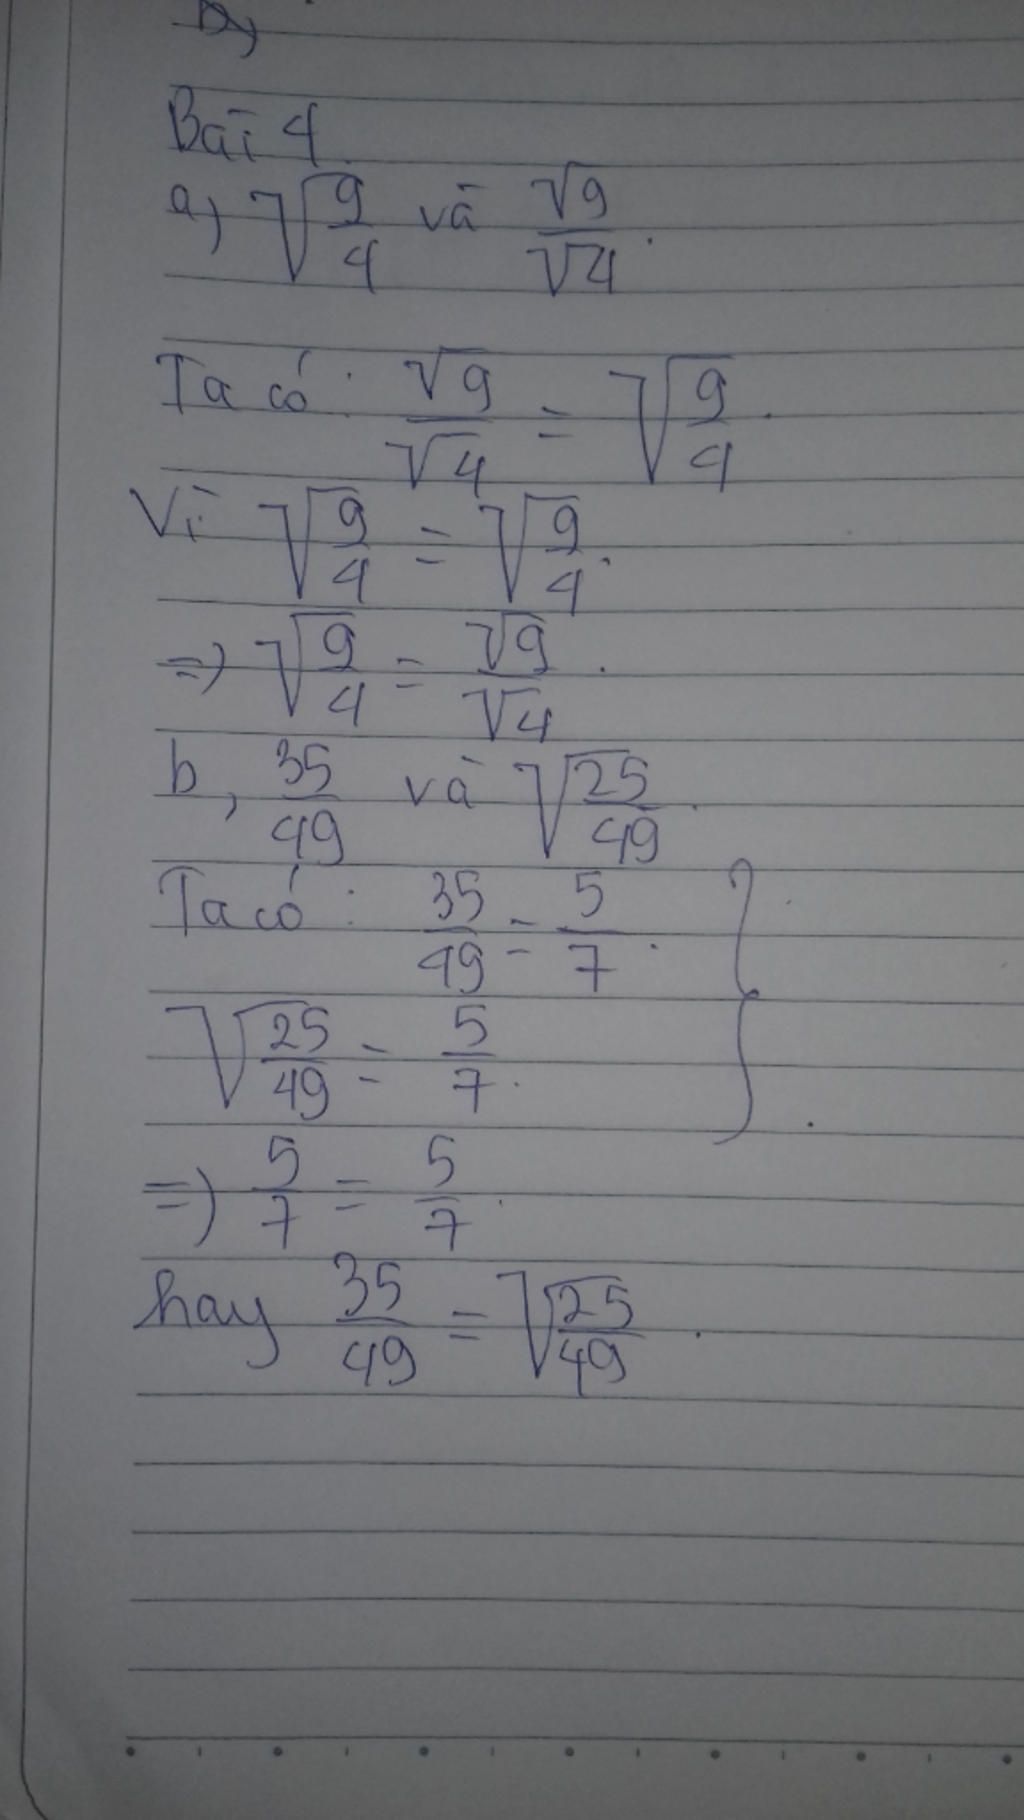 b)
Bài 4
a) √(9/4) và √9/√4.
Ta có: √9/√4 = √(9/4).
Vì √(9/4) = √(9/4).
=> √(9/4) = √9/√4.
b, 35/49 và √(25/49).
Ta có: 35/49 = 5/7.
√(25/49) = 5/7.
=> 5/7 = 5/7.
hay 35/49 = √(25/49).